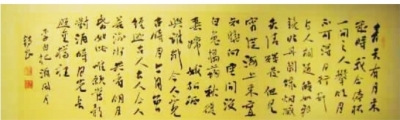 青天有月来
幾時我今停杯
一问之人攀明月
不可得月行却
与人相随皎如飞
镜临丹阙绿烟滅
尽清辉发但见
宵從海上来宁
知晓向云间没
白兔捣药秋復
春嫦娥孤栖
與谁邻今人不见
古時月今月曾
经照古人古人今人
若流水共看明月
皆如此唯願當歌
對酒時月光長
照金樽裡
李白把酒问月